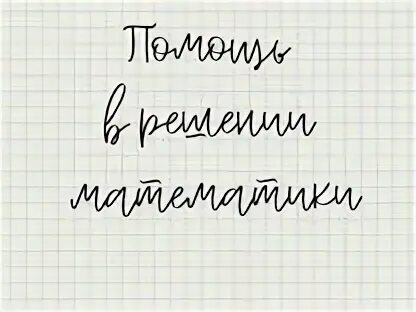 Помощь
в решении
математики